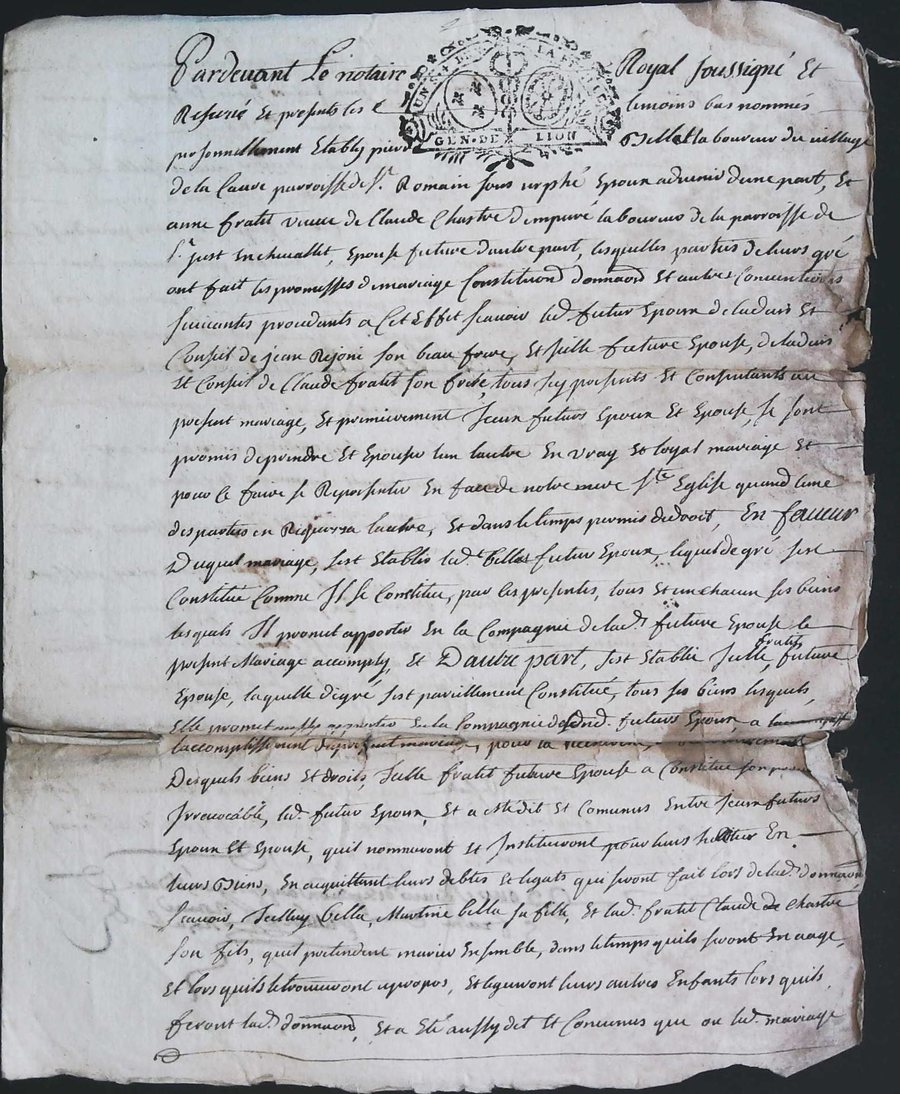 Pardevant Le notaire Royal soussigné Et
Reservé Et presents les temoins bas nommés
GEN·DE LION
personnellement Estably pierre Bellat laboureur du village
de la Cauve parroisse de St. Romain sous urphé Epoux advenir dune part, Et
anne fratit veuve de Claude Chastre laboureur de la parroisse de
St. just En chevallet, Epouse future dautre part, lesquelles parties de leurs gré
ont fait les promesses de mariage Constitution donnaon Et autres Conventions
suivantes procedants a Cet Effet scavoir led. futur Epoux de ladvis Et
Conseil de jean Rejoni son beau frere, Et jcelle future Epouse, de ladvis
Et Conseil de Claude fratit son frere, tous jcy presents Et Consentants au
present mariage, Et premierement jceux futurs Epoux Et Epouse, se sont
promis de prendre Et Epouser lun lautre En vray Et loyal mariage Et
pour ce faire se Representer En face de notre mere Ste Eglise quand lune
des parties en Requerra lautre, Et dans le temps permis de droit, En faveur
Duquel mariage, sest Etablis led. bellat futur Epoux, lequel de gré sest
Constitué Comme Il se Constitue, par les presentes, tous Et un chacun ses biens
lesquels Il promet apporter En la Compagnie de lad. future Epouse le
present Mariage accomply, Et Dautre part, sest Etablie jcelle fratit, future
Epouse, laquelle de gré sest pareillement Constituée, tous ses biens lesquels
Elle promet apporter En la Compagnie dud. futur Epoux, a
laccomplissement du present mariage, pour la
Desquels biens Et droits, jcelle fratit future Epouse a Constitué son
Irrevocable, led. futur Epoux, Et a Eté dit Et Convenus Entre jceux futurs
Epoux Et Epouse, quil nommeront Et Institueront pour leurs heritier En
leurs Biens, En acquittant leurs debtes Et legats qui seront fait lors de lad. donnaon
scavoir, jcelluy bella, Martine bella sa fille, Et lad. fratit Claude de Chastre
son fils, quil pretendent marier Ensemble, dans le temps quils seront En aage,
Et lors quils le trouveront apropos, Et legueront leurs autres Enfants lors quils
feront lad. donnaon, Et a Eté aussy dit Et Convenus que ou led. mariage